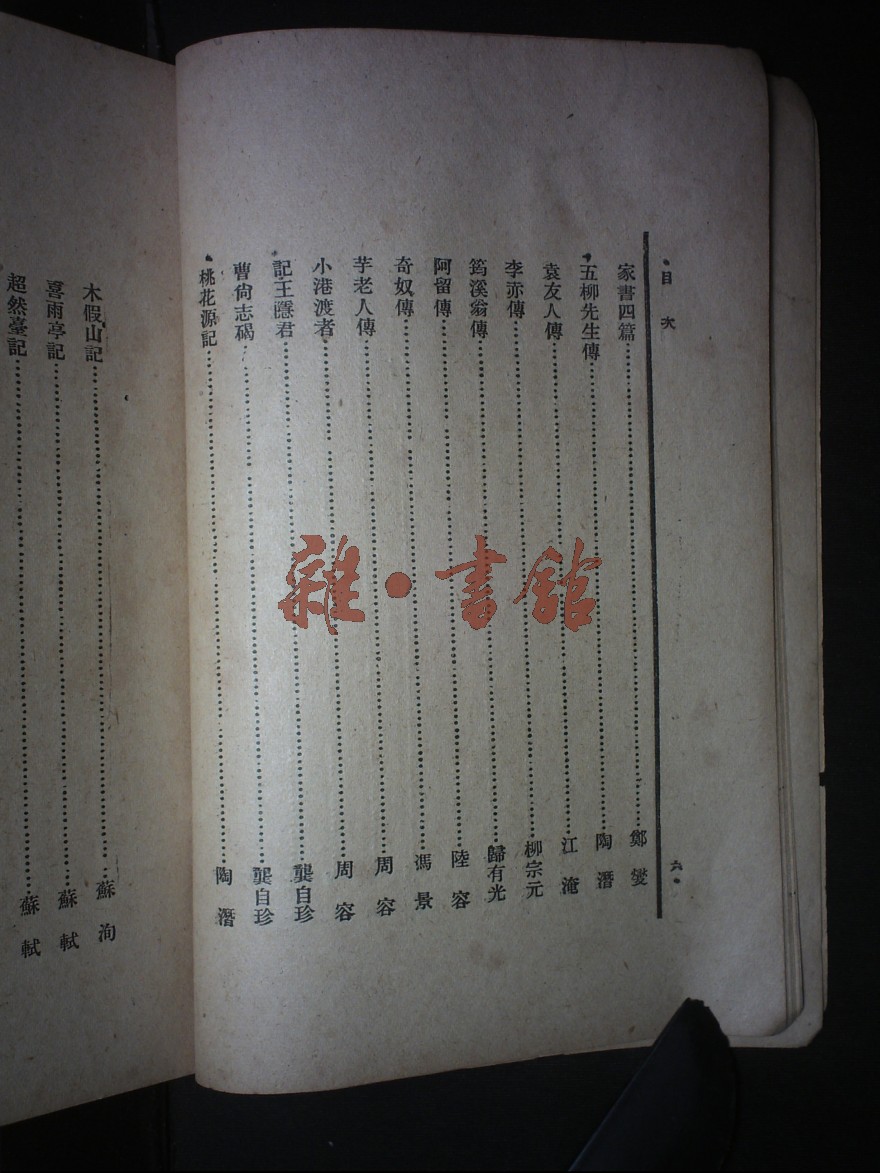 目次
六
家書四篇 鄭燮
五柳先生傳 陶潛
袁友人傳 江淹
李赤傳 柳宗元
筠溪翁傳 歸有光
阿留傳 陸容
奇奴傳 馮景
芋老人傳 周容
小港渡者 周容
記王隱君 龔自珍
曹尙志碣 龔自珍
桃花源記 陶潛
木假山記 蘇洵
喜雨亭記 蘇軾
超然臺記 蘇軾
雜·書館